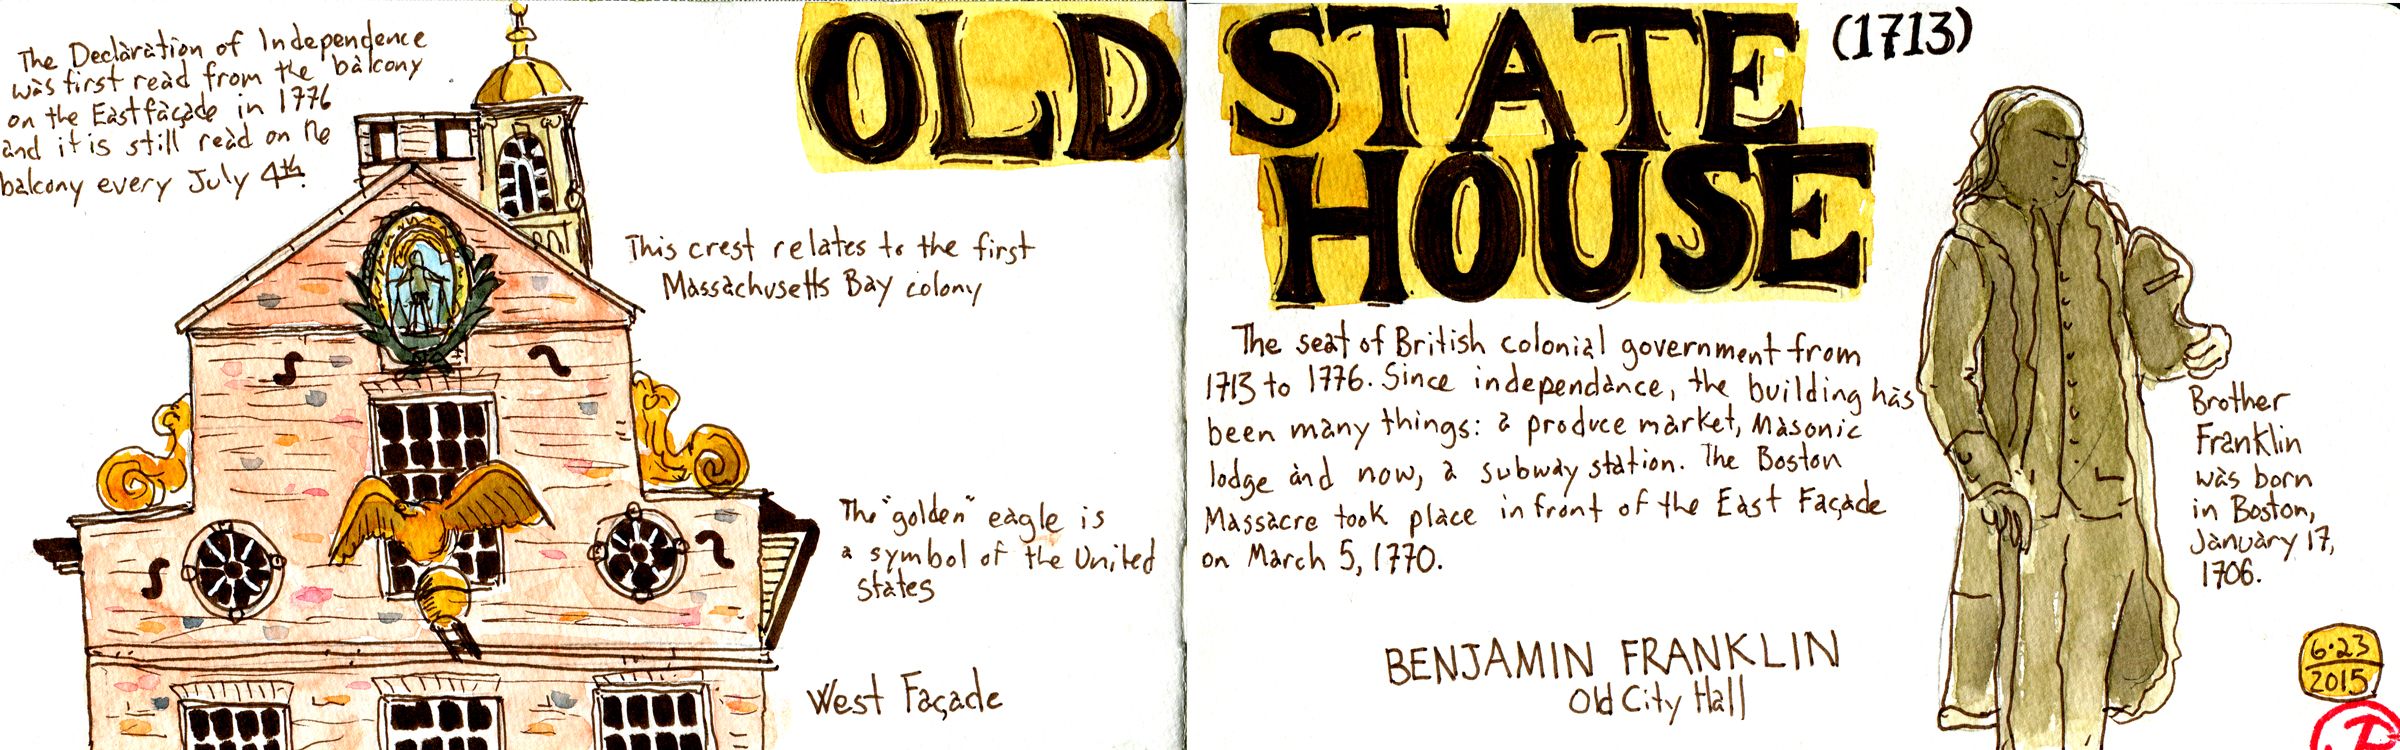 The Declaration of Independence
was first read from the balcony
on the East façade in 1776
and it is still read on the
balcony every July 4th.
OLD STATE
HOUSE
(1713)
This crest relates to the first
Massachusetts Bay colony
The "golden" eagle is
a symbol of the United
states
West Façade
The seat of British colonial government from
1713 to 1776. Since independance, the building has
been many things: a produce market, Masonic
lodge and now, a subway station. The Boston
Massacre took place in front of the East Façade
on March 5, 1770.
BENJAMIN FRANKLIN
Old City Hall
Brother
Franklin
was born
in Boston,
January 17,
1706.
6·23
2015